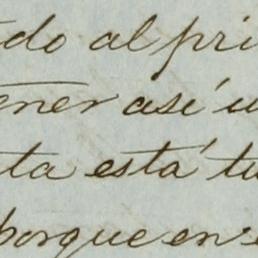 do al pri
ener así u
ta está tu
porque en